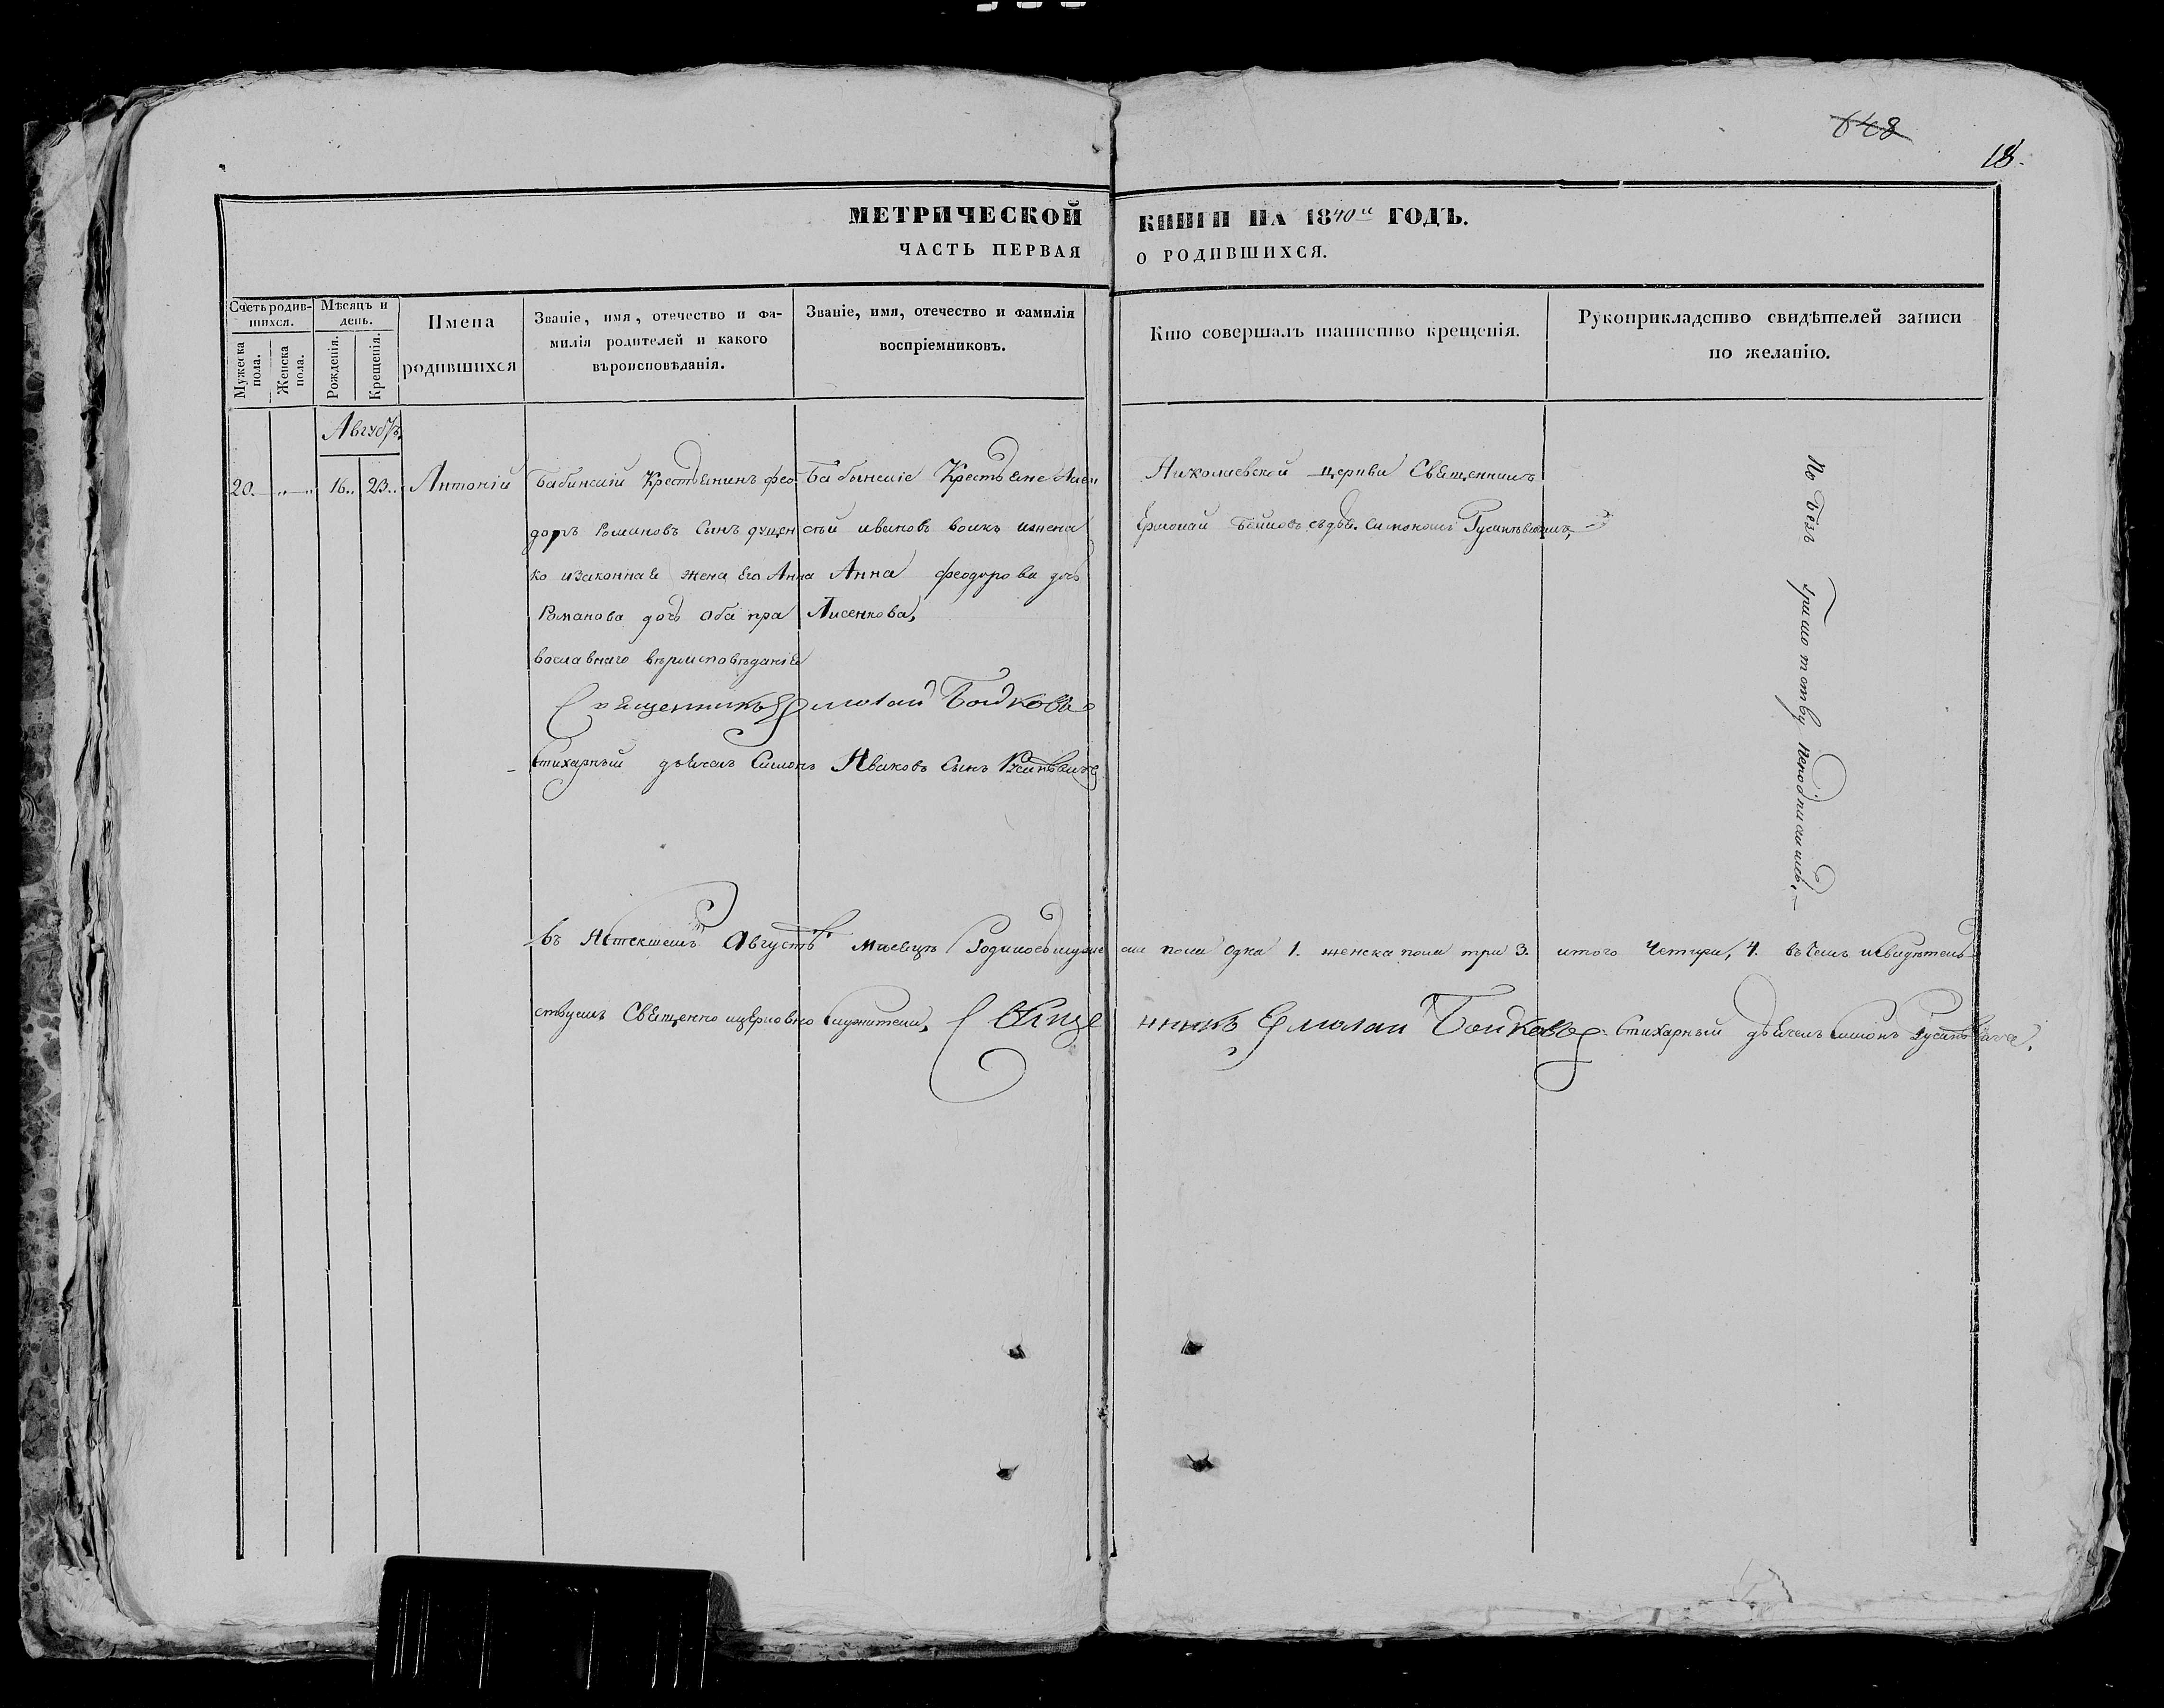 648
18.
МЕТРИЧЕСКОЙ КНИГИ НА 1840й ГОДЪ.
ЧАСТЬ ПЕРВАЯ О РОДИВШИХСЯ.
Счетъ родив-
шихся.
Мужеска пола.
Женска пола.
Мѣсяцъ и
день.
Рожденія.
Крещенія.
Имена
родившихся
Званіе, имя, отечество и фа-
милія родителей и какого
вѣроисповѣданія.
Званіе, имя, отечество и фамилія
воспріемниковъ.
Кто совершалъ таинство крещенія.
Рукоприкладство свидѣтелей записи
по желанію.
Августъ
20. 16. 23. Антоній
Бабинскій Крестьянинъ Фео
доръ Романовъ Сынъ
ко изаконная жена Его Анна
Романова дочь Оба пра
вославнаго вѣроисповѣданія
Священникъ Ермолай Бойковъ
Стихарный дьячекъ Симонъ Ивановъ Сынъ
Бабынскіе Крестьяне
ивановъ
Анна Феодорова дочь
Лисенкова,
Николаевской церкви Священникъ
Ермолай Бойковъ съ дьяч. Симономъ
По безъ грамотству неподписались.
въ Истекшемъ Августѣ Мѣсяцѣ Родилось мужеска пола одна 1. женска пола три 3. итого Четыри, 4. въ чемъ исвидѣтель
ствуемъ Священно ицерковно служители, Священникъ Ермолай Бойковъ Стихарный дьячекъ Симонъ